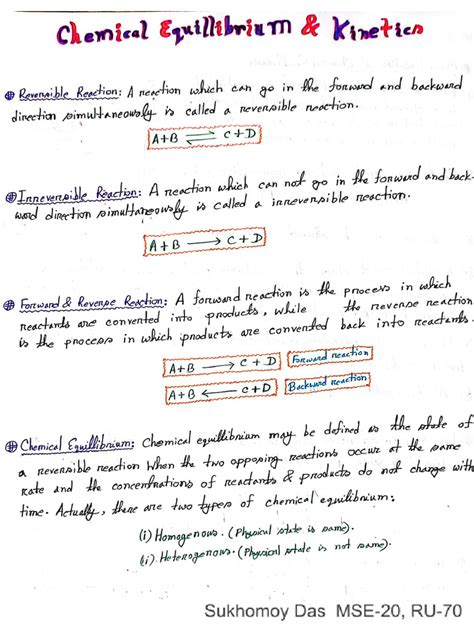 Chemical Equillibrium & Kinetics
Reversible Reaction: A reaction which can go in the forward and backward
direction simultaneously is called a reversible reaction.
A+B ⇌ C+D
Irreversible Reaction: A reaction which can not go in the forward and back-
ward direction simultaneously is called a irreversible reaction.
A+B → C+D
Forward & Reverse Reaction: A forward reaction is the process in which
reactants are converted into products, while the reverse reaction
is the process in which products are converted back into reactants.
A+B → C+D Forward reaction
A+B ← C+D Backward reaction
Chemical Equillibrium: Chemical equillibrium may be defined as the state of
a reversible reaction when the two opposing reactions occur at the same
rate and the concentrations of reactants & products do not change with
time. Actually, there are two types of chemical equilibrium:
(i) Homogenous. (Physical state is same).
(ii) Heterogenous. (Physical state is not same).
Sukhomoy Das MSE-20, RU-70